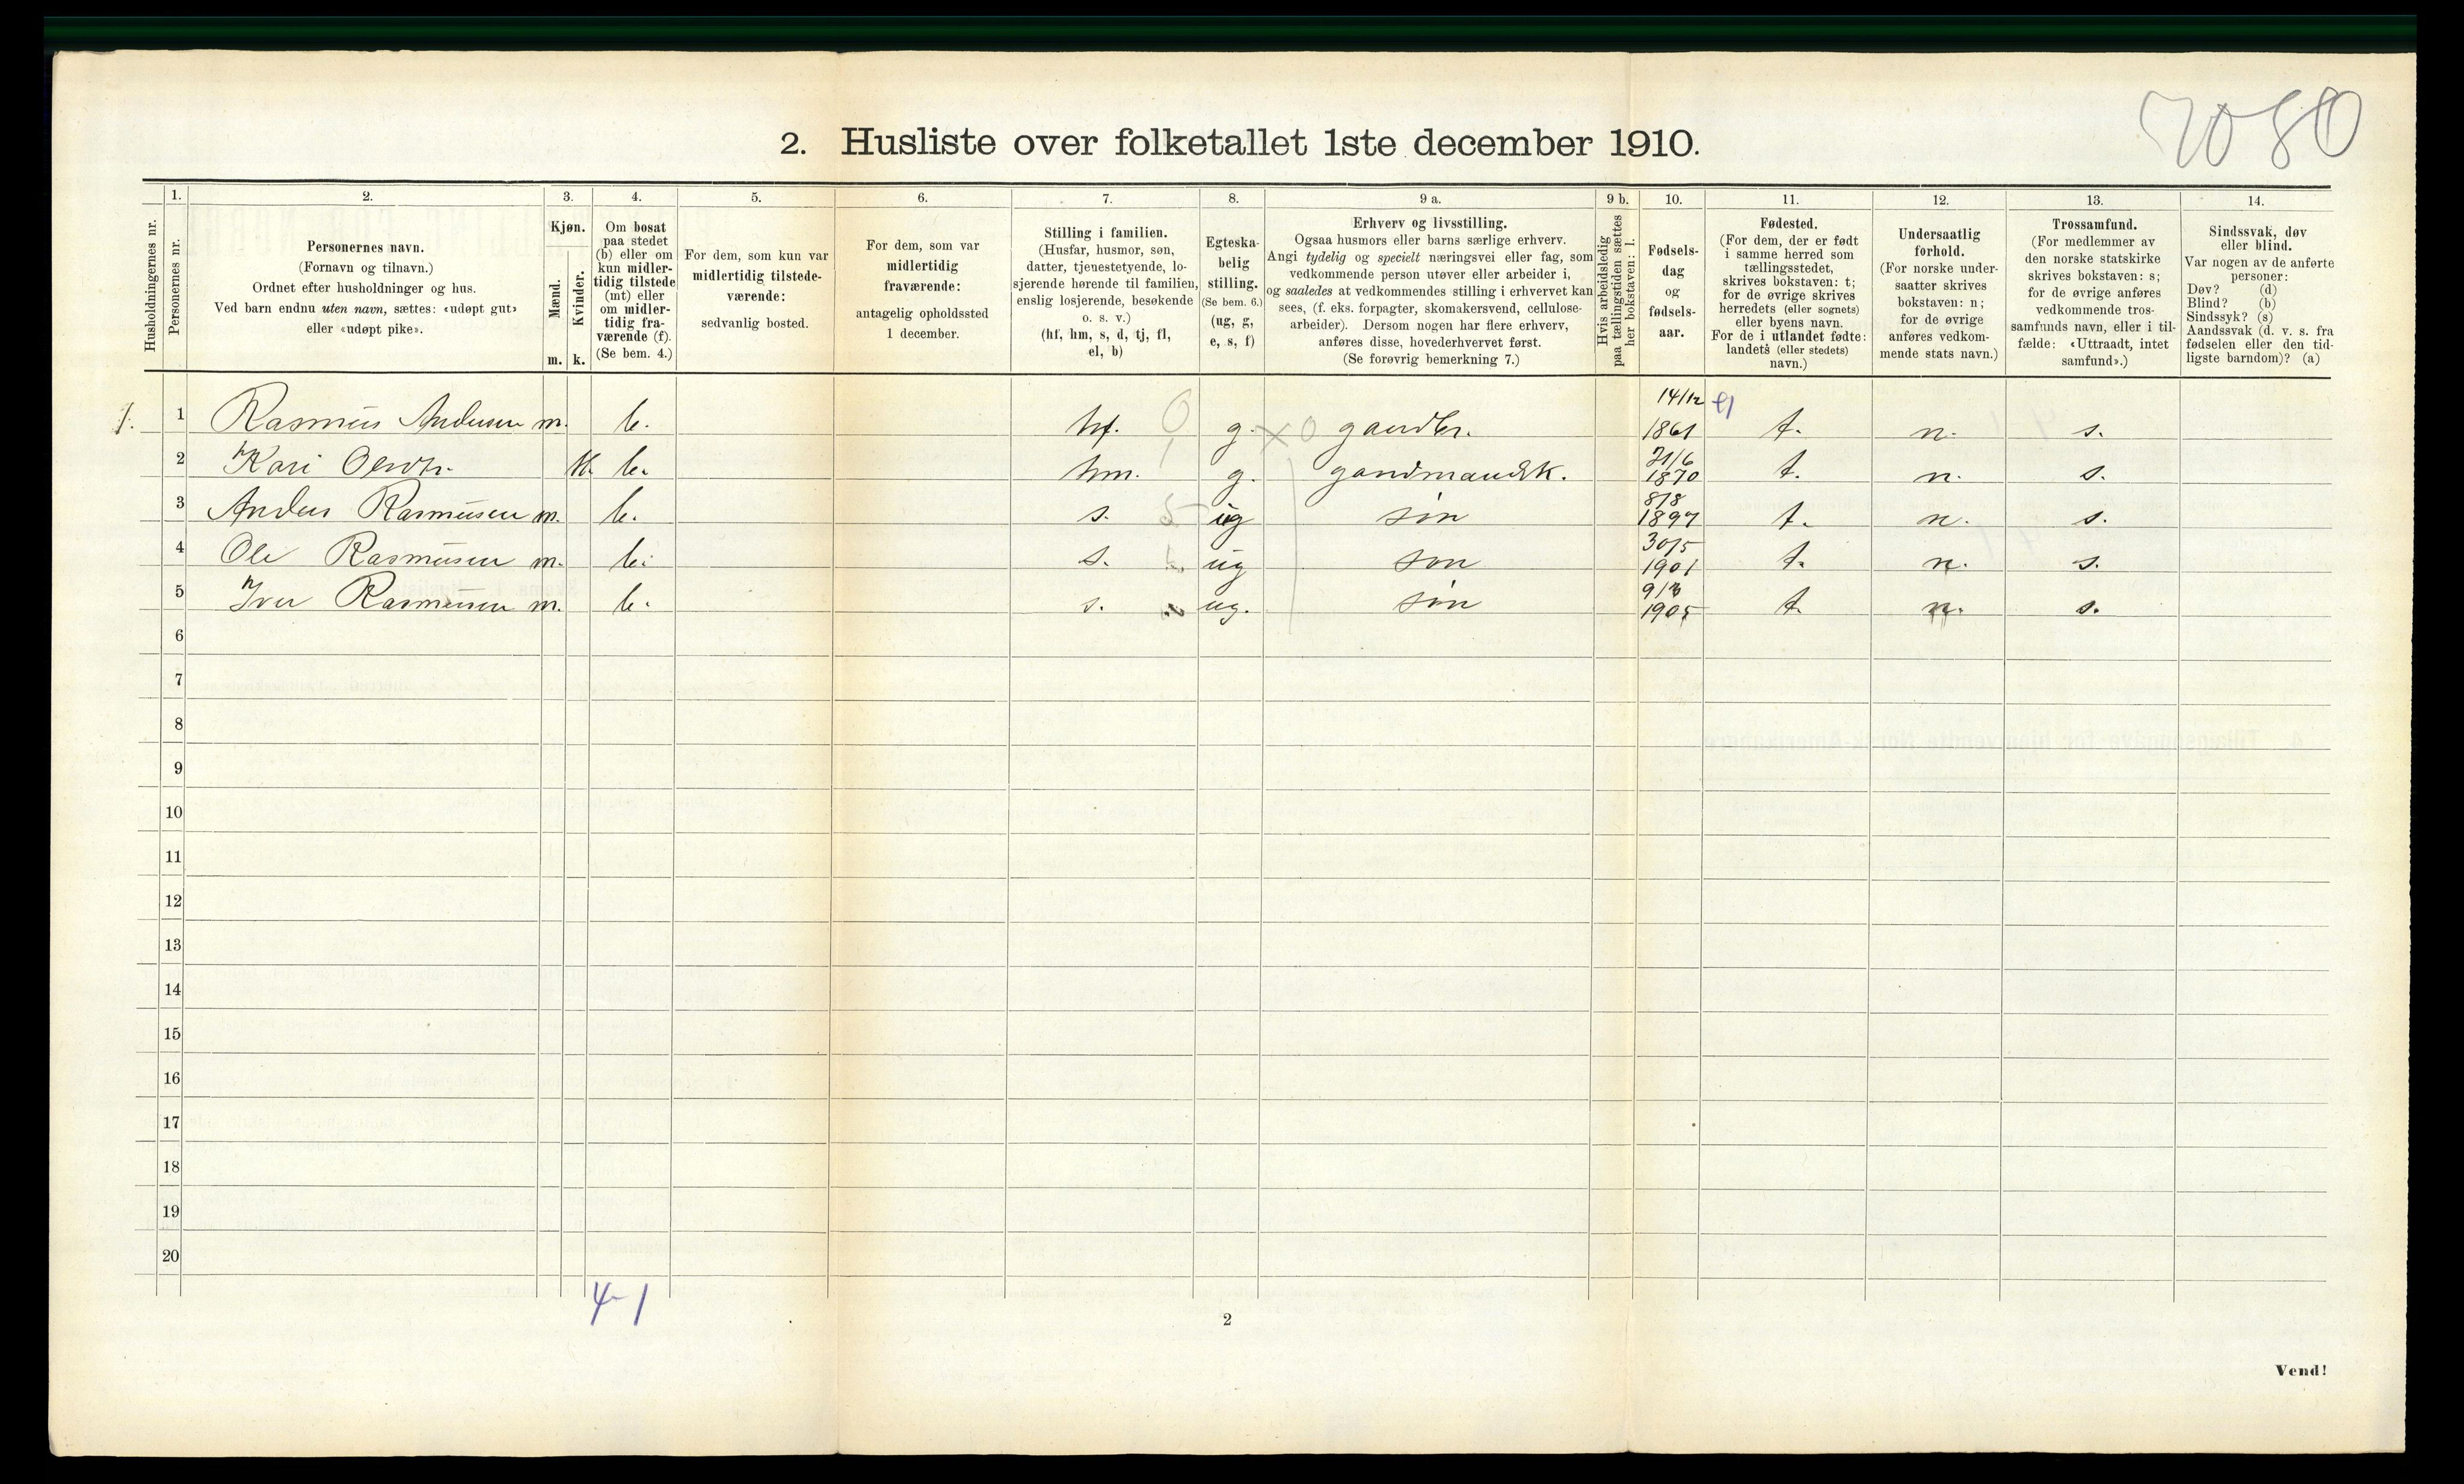 7080
2. Husliste over folketallet 1ste december 1910.
Husholdningernes nr.
1.
Personernes nr.
2.
Personernes navn.
(Fornavn og tilnavn.)
Ordnet efter husholdninger og hus.
Ved barn endnu uten navn, sættes: «udøpt gut»
eller «udøpt pike».
3.
Kjøn.
Mænd.
Kvinder.
m. k.
4.
Om bosat
paa stedet
(b) eller om
kun midler-
tidig tilstede
(mt) eller
om midler-
tidig fra-
værende (f).
(Se bem. 4.)
5.
For dem, som kun var
midlertidig tilstede-
værende:
sedvanlig bosted.
6.
For dem, som var
midlertidig
fraværende:
antagelig opholdssted
1 december.
7.
Stilling i familien.
(Husfar, husmor, søn,
datter, tjenestetyende, lo-
sjerende hørende til familien,
enslig losjerende, besøkende
o. s. v.)
(hf, hm, s, d, tj, fl,
el, b)
8.
Egteska-
belig
stilling.
(Se bem. 6.)
(ug, g,
e, s, f)
9 a.
Erhverv og livsstilling.
Ogsaa husmors eller barns særlige erhverv.
Angi tydelig og specielt næringsvei eller fag, som
vedkommende person utøver eller arbeider i,
og saaledes at vedkommendes stilling i erhvervet kan
sees, (f. eks. forpagter, skomakersvend, cellulose-
arbeider). Dersom nogen har flere erhverv,
anføres disse, hovederhvervet først.
(Se forøvrig bemerkning 7.)
9 b.
Hvis arbeidsledig
paa tællingstiden sættes
her bokstaven: l.
10.
Fødsels-
dag
og
fødsels-
aar.
11.
Fødested.
(For dem, der er født
i samme herred som
tællingsstedet,
skrives bokstaven: t;
for de øvrige skrives
herredets (eller sognets)
eller byens navn.
For de i utlandet fødte:
landets (eller stedets)
navn.)
12.
Undersaatlig
forhold.
(For norske under-
saatter skrives
bokstaven: n;
for de øvrige
anføres vedkom-
mende stats navn.)
13.
Trossamfund.
(For medlemmer av
den norske statskirke
skrives bokstaven: s;
for de øvrige anføres
vedkommende tros-
samfunds navn, eller i til-
fælde: «Uttraadt, intet
samfund».)
14.
Sindssvak, døv
eller blind.
Var nogen av de anførte
personer:
Døv? (d)
Blind? (b)
Sindssyk? (s)
Aandssvak (d. v. s. fra
fødselen eller den tid-
ligste barndom)? (a)
1. 1 Rasmus Andersen m. b. hf. 0 g. x0 gaardbr. 14/12 1861 t. n. s.
2 Kari Olsdtr. k. b. hm. g. gaardmandsk. 21/6 1870 t. n. s.
3 Anders Rasmusen m. b. s. 5 ug søn 8/8 1897 t. n. s.
4 Ole Rasmusen m. b. s. ug søn 30/5 1901 t. n. s.
5 Iver Rasmusen m. b. s. ug. søn 9/3 1905 t. n. s.
6
7
8
9
10
11
12
13
14
15
16
17
18
19
20
4-1
2
Vend!